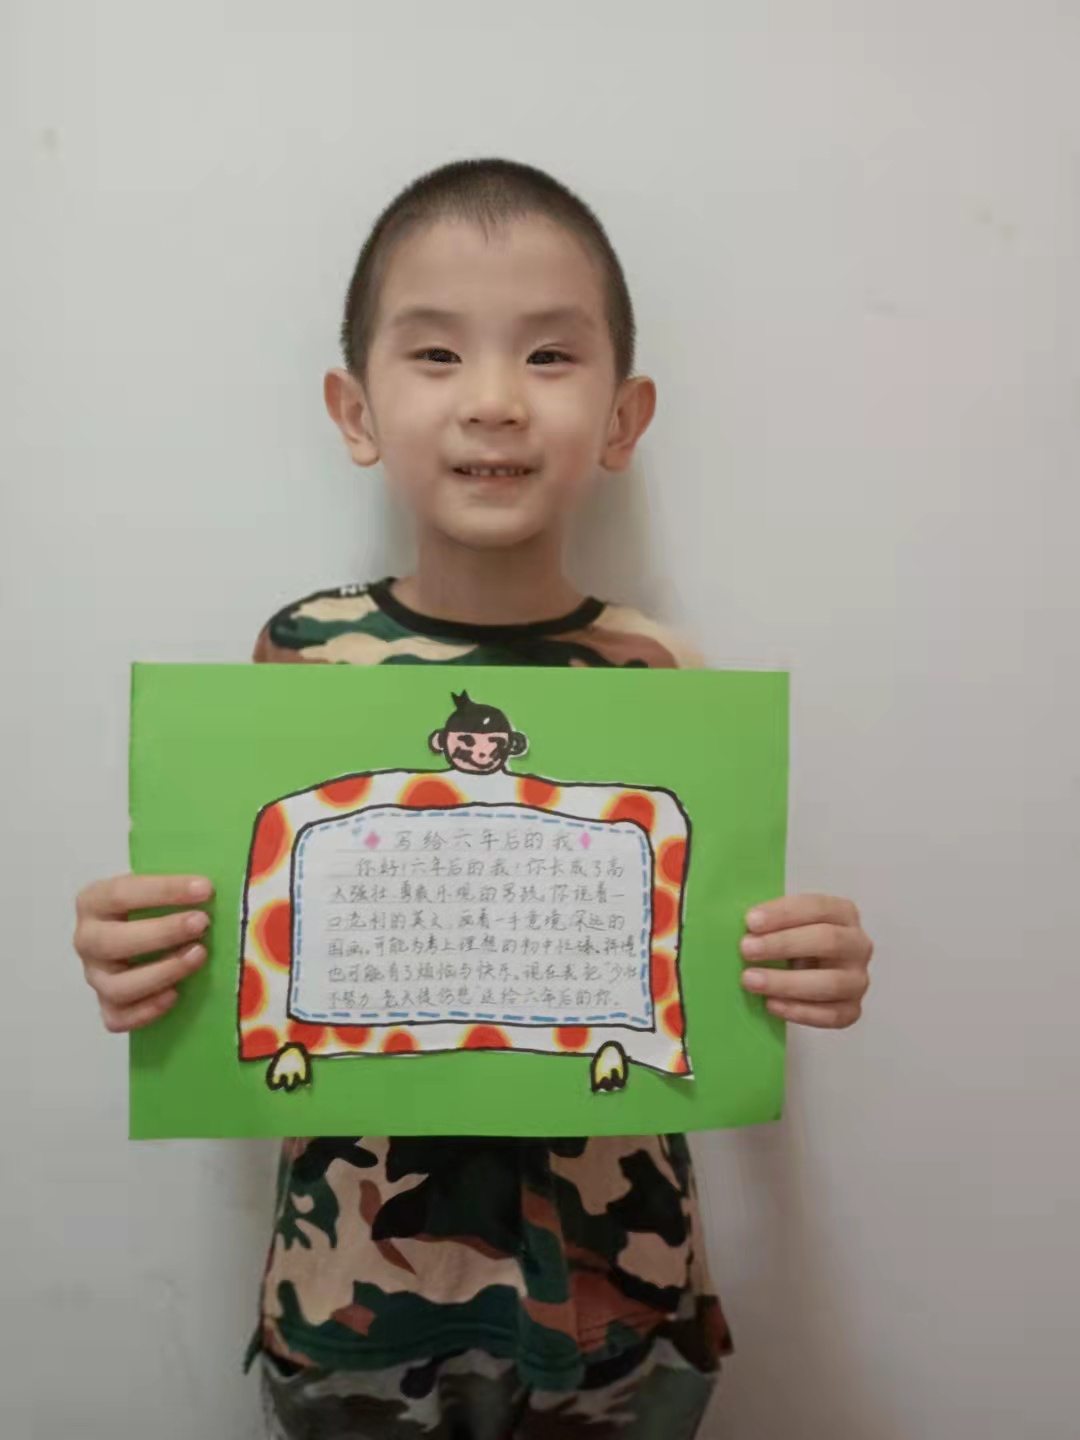 写给六年后的我
你好！六年后的我！你长成了高
大强壮、勇敢乐观的男孩。你说着一
口流利的英文，画着一手意境深远的
国画。可能为考上理想的初中忙碌、拼搏
也可能有了烦恼与快乐。现在我把“少壮
不努力 老大徒伤悲”送给六年后的你。